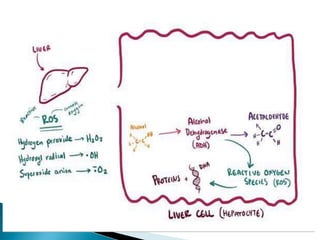 LIVER
Reactive
ROS
contain oxygen
Hydrogen peroxide → H₂O₂
Hydroxyl radical → ·OH
Superoxide anion → ·O₂
Alcohol
H
H
C-C
OH
H
Alcohol
Dehydrogenase
(ADH)
ACETALDEHYDE
H
O
H-C-C
H
H
PROTEINS +
DNA
REACTIVE OXYGEN
SPECIES (ROS)
LIVER CELL (HEPATOCYTE)